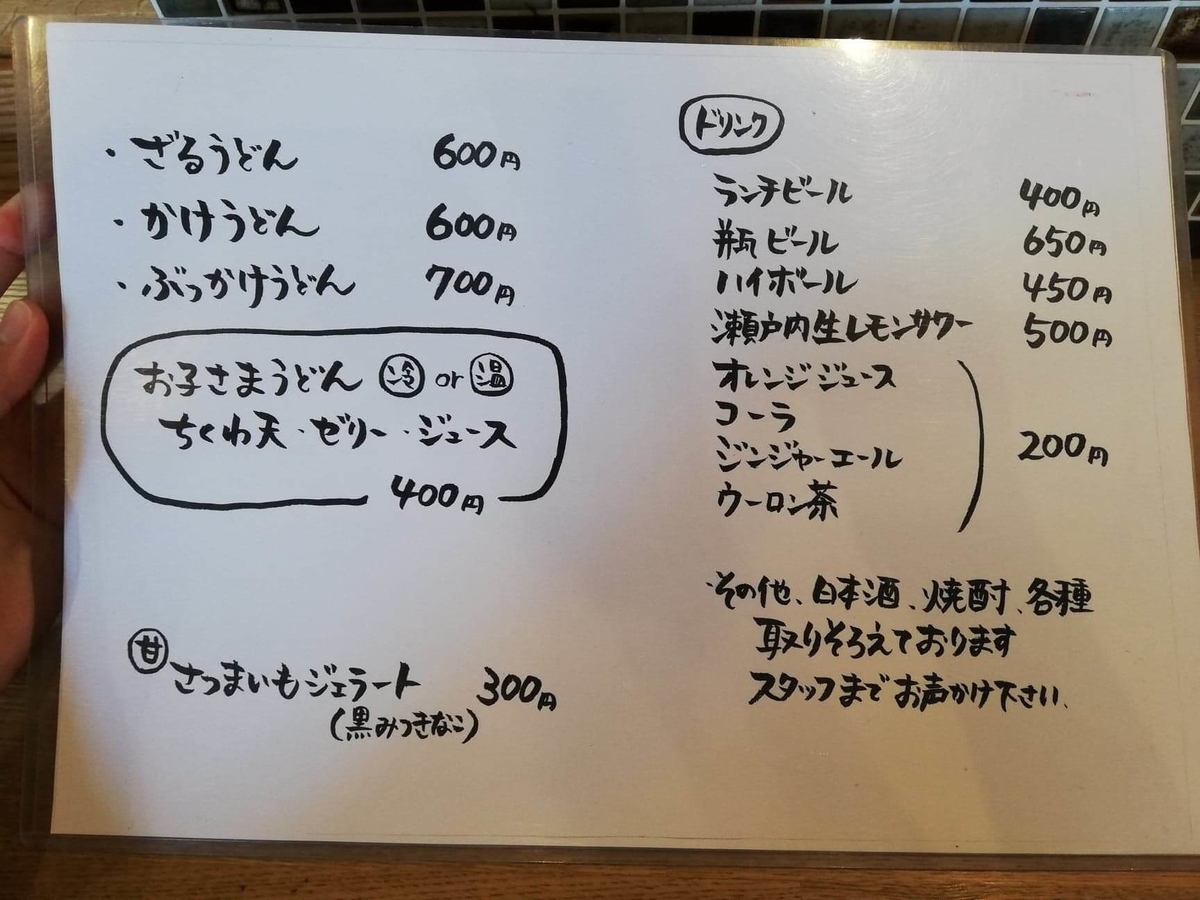 ・ざるうどん 600円
・かけうどん 600円
・ぶっかけうどん 700円
お子さまうどん 冷 or 温
ちくわ天・ゼリー・ジュース
400円
甘
さつまいもジェラート 300円
(黒みつきなこ)
ドリンク
ランチビール 400円
瓶ビール 650円
ハイボール 450円
瀬戸内生レモンサワー 500円
オレンジジュース
コーラ
ジンジャーエール
ウーロン茶
200円
・その他、日本酒、焼酎、各種
取りそろえております
スタッフまでお声かけ下さい、